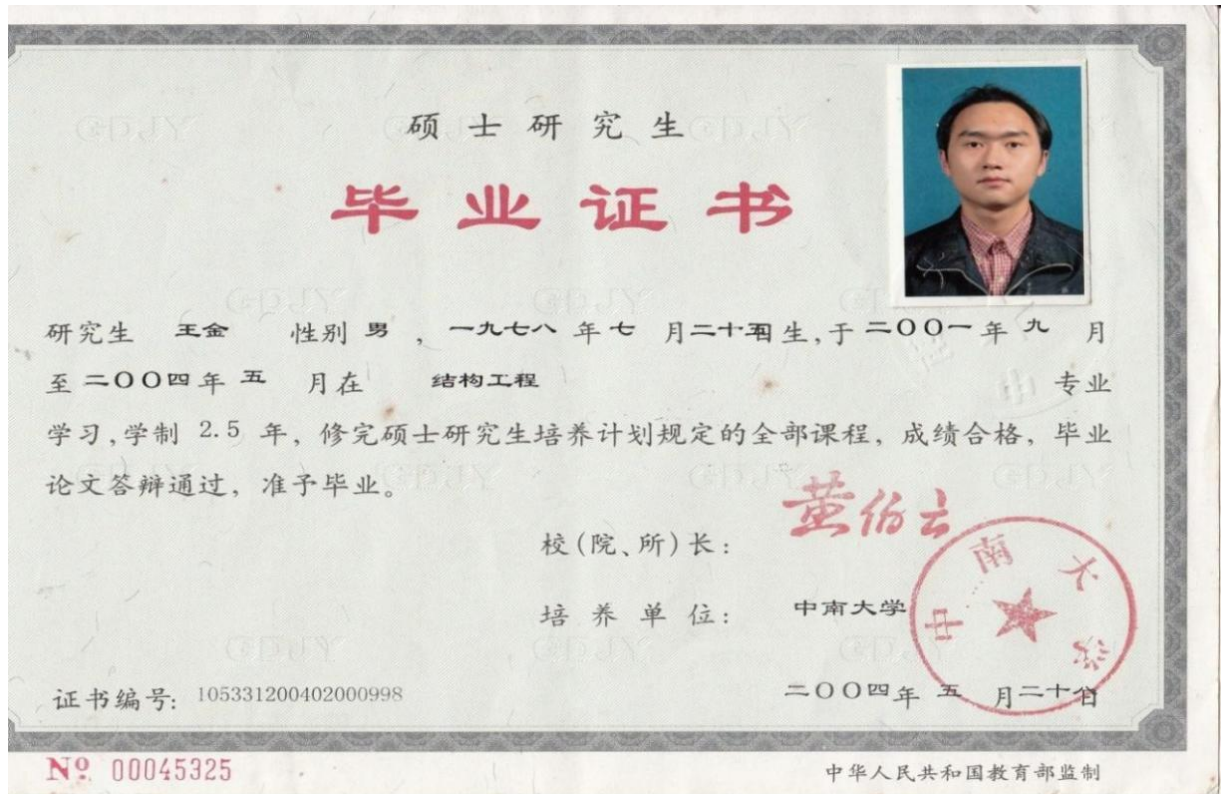 硕士研究生
毕业证书
研究生 王金 性别 男 , 一九七八 年 七 月 二十五日生, 于 二〇〇一 年 九 月
至 二〇〇四 年 五 月在 结构工程 专业
学习, 学制 2.5 年, 修完硕士研究生培养计划规定的全部课程, 成绩合格, 毕业
论文答辩通过, 准予毕业。
黄伯云
校(院、所)长:
培养单位: 中南大学
中南大学
二〇〇四年 五 月二十日
证书编号: 105331200402000998
№ 00045325
中华人民共和国教育部监制
GDJY